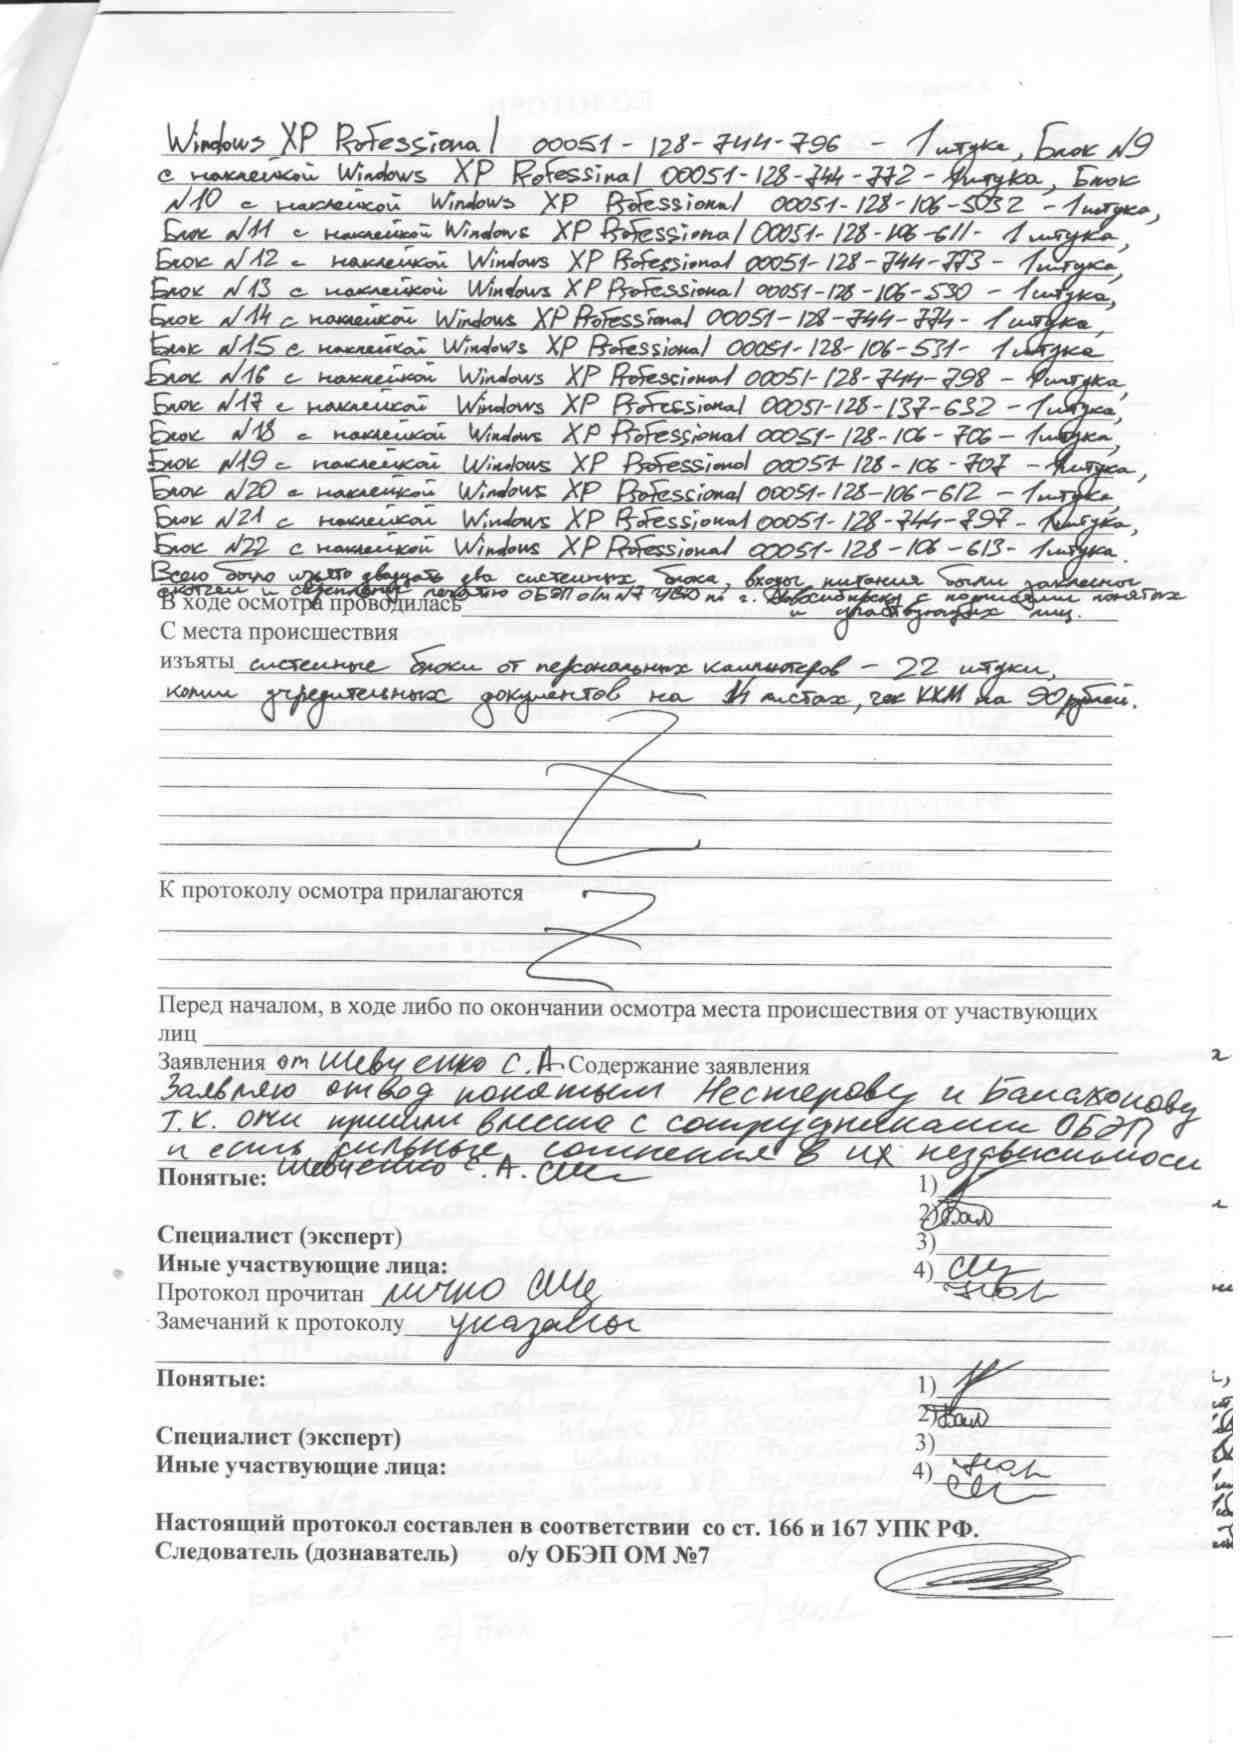 Windows XP Professional 00051-128-744-796 - 1 штука, Блок №9
с наклейкой Windows XP Professinal 00051-128-744-772 - 1 штука, Блок
№10 с наклейкой Windows XP Professional 00051-128-106-5032 - 1 штука,
Блок №11 с наклейкой Windows XP Professional 00051-128-106-611- 1 штука,
Блок №12 с наклейкой Windows XP Professional 00051-128-744-773 - 1 штука,
Блок №13 с наклейкой Windows XP Professional 00051-128-106-530 - 1 штука,
Блок №14 с наклейкой Windows XP Professional 00051-128-744-774- 1 штука,
Блок №15 с наклейкой Windows XP Professional 00051-128-106-531- 1 штука
Блок №16 с наклейкой Windows XP Professional 00051-128-744-798 - 1 штука,
Блок №17 с наклейкой Windows XP Professional 00051-128-137-632 - 1 штука,
Блок №18 с наклейкой Windows XP Professional 00051-128-106-706 - 1 штука,
Блок №19 с наклейкой Windows XP Professional 00051-128-106-707 - 1 штука,
Блок №20 с наклейкой Windows XP Professional 00051-128-106-612 - 1 штука,
Блок №21 с наклейкой Windows XP Professional 00051-128-744-797 - 1 штука,
Блок №22 с наклейкой Windows XP Professional 00051-128-106-613- 1 штука.
Всего было изъято двадцать два системных блока, входы питания были заклеены
скотчем и скреплены печатью ОБЭП о/м №7 УВД по г. Новосибирску с подписями понятых
и участвующих лиц.
В ходе осмотра проводилась
С места происшествия
изъяты системные блоки от персональных компьютеров - 22 штуки,
копии учредительных документов на 14 листах, чек ККМ на 90 рублей.
К протоколу осмотра прилагаются
Перед началом, в ходе либо по окончании осмотра места происшествия от участвующих
лиц
Заявления от Шевченко С.А. Содержание заявления
Заявляю отвод понятым Нестерову и Балахонову
т.к. они пришли вместе с сотрудниками ОБЭП
и есть сильные сомнения в их независимости
Шевченко С.А.
Понятые: 1)
2) Бал
Специалист (эксперт) 3)
Иные участвующие лица: 4)
Протокол прочитан лично
Замечаний к протоколу указаны
Понятые: 1)
2) Бал
Специалист (эксперт) 3)
Иные участвующие лица: 4)
Настоящий протокол составлен в соответствии со ст. 166 и 167 УПК РФ.
Следователь (дознаватель) о/у ОБЭП ОМ №7